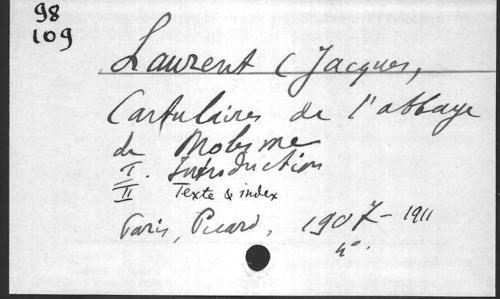 98
109
Laurent (Jacques,
Cartulaires de l'abbaye
de Molesme
I. Introduction
II Texte & index
Paris, Picard, 1907-1911
4°.